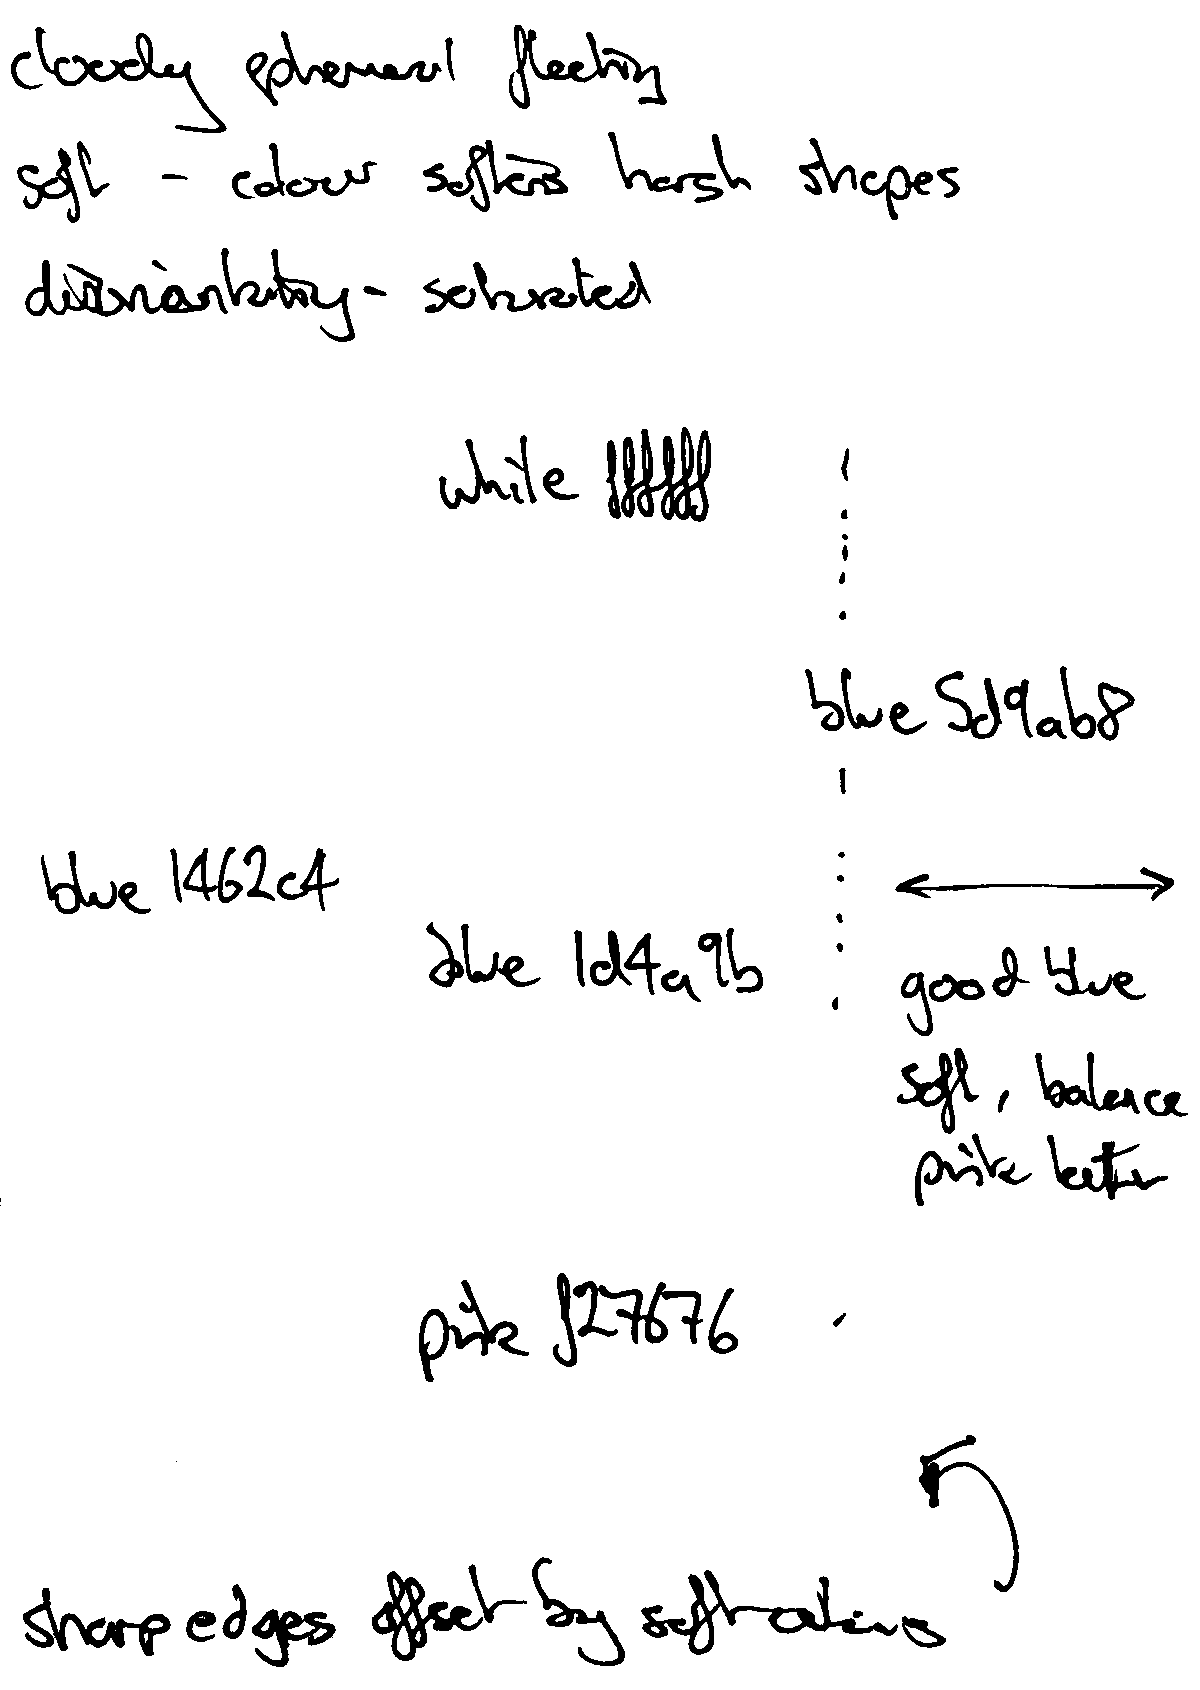 cloudy ephemeral fleeting
soft - colour softens harsh shapes
disorientating - saturated
white ffffff
blue 5d9ab8
blue 1462c4
blue 1d4a9b
good blue
soft, balance
pink better
pink f27676
sharp edges offset by soft colours